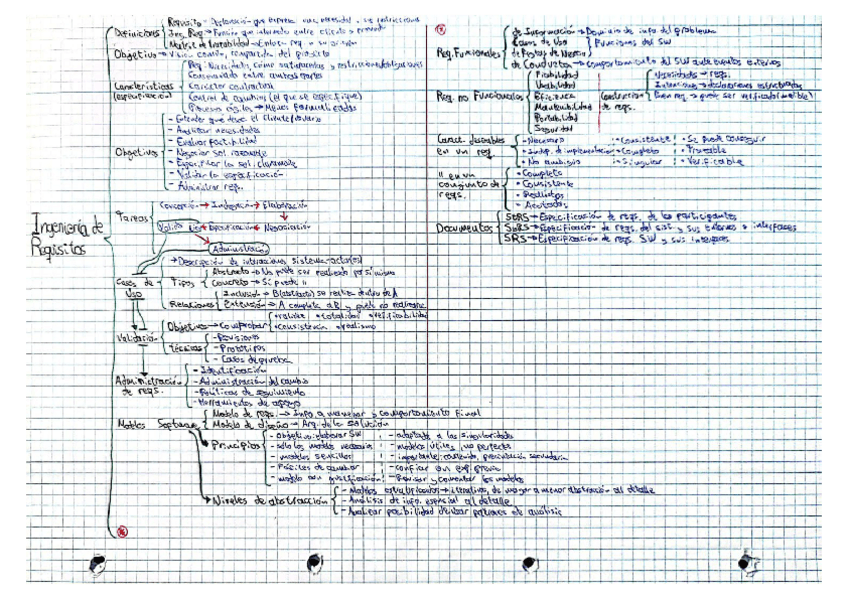 Ingeniería de
Requisitos
Definiciones
Requisito → Declaración que expresa una necesidad y sus restricciones
Ing. Req → Función que intermedia entre cliente y
Matriz de trazabilidad → Enlace req. →
Objetivo → Visión común, compartida del proyecto
Características
(especificación)
Req: Necesidades, cómo
Consensuado entre ambas partes
Carácter contractual
Control de cambios (el que se especifique)
Proceso ágil → Menos formalizados
Objetivos
- Entender qué desea el cliente/usuario
- Analizar necesidades
- Evaluar factibilidad
- Negociar sol. razonable
- Especificar la sol. claramente
- Validar la especificación
- Administrar req.
Tareas
Concepción → Indagación → Elaboración
Validación ← Especificación ← Negociación
Administración
Casos de
Uso
→ Descripción de interacciones sistema-actor(es)
Tipos
Abstracto → No puede ser realizado por sí mismo
Concreto → Sí puede "
Relaciones
Inclusión → B(abstracto) se realiza dentro de A
Extensión → A completa a B y puede no realizarse
Validación
Objetivo → Comprobar
• validez • totalidad • verificabilidad
• consistencia • realismo
Técnicas
- Revisiones
- Prototipos
- Casos de prueba
Administración
de reqs.
- Identificación
- Administración del cambio
- Políticas de seguimiento
- Herramientas de apoyo
Modelos Software
Modelo de reqs. → Info. a manejar y comportamiento final
Modelo de diseño → Arq. de la solución
Principios
- Objetivo: elaborar SW
- sólo los modelos necesarios
- modelos sencillos
- fáciles de cambiar
- modelo con justificación
- adaptado a las singularidades
- modelos útiles, no perfectos
- importante: contenido, presentación secundaria
- confiar en exp. previa
- Revisar y comentar los modelos
Niveles de abstracción
- Modelos estratificados → iterativos, de mayor a menor abstracción al detalle
- Análisis de info. esencial al detalle
- Analizar posibilidad de usar patrones de análisis
Req. Funcionales
de Información → Dominio de info. del problema
Casos de Uso
de Reglas de Negocio
Funciones del SW
de Conducta → comportamiento del SW ante eventos externos
Req. no Funcionales
Fiabilidad
Usabilidad
Eficiencia
Mantenibilidad
Portabilidad
Seguridad
Construcción
de reqs.
Necesidades → reqs.
Buen req. → puede ser verificado (medible)
Caract. deseables
en un req.
- Necesario
- Indep. de implementación
- No ambiguo
• Consistente
• Completo
• Singular
• Se puede conseguir
• Trazable
• Verificable
" en un
conjunto de
reqs.
- Completo
- Consistente
- Realistas
- Acotados
Documentos
StRS → Especificación de reqs. de los participantes
SyRS → Especificación de reqs. del sist. y sus externos e interfaces
SRS → Especificación de reqs. SW y sus interfaces